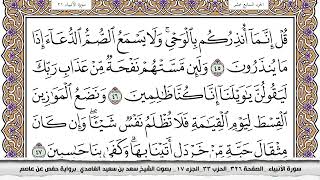 سورة الأنبياء ٢١
الجزء السابع عشر
قُلْ إِنَّمَآ أُنذِرُكُم بِٱلْوَحْىِ ۚ وَلَا يَسْمَعُ ٱلصُّمُّ ٱلدُّعَآءَ إِذَا
مَا يُنذَرُونَ ٤٥ وَلَئِن مَّسَّتْهُمْ نَفْحَةٌ مِّنْ عَذَابِ رَبِّكَ
لَيَقُولُنَّ يَٰوَيْلَنَآ إِنَّا كُنَّا ظَٰلِمِينَ ٤٦ وَنَضَعُ ٱلْمَوَٰزِينَ
ٱلْقِسْطَ لِيَوْمِ ٱلْقِيَٰمَةِ فَلَا تُظْلَمُ نَفْسٌ شَيْـًٔا ۖ وَإِن كَانَ
مِثْقَالَ حَبَّةٍ مِّنْ خَرْدَلٍ أَتَيْنَا بِهَا ۗ وَكَفَىٰ بِنَا حَٰسِبِينَ ٤٧
سورة الأنبياء الصفحة ٣٢٦ الحزب ٣٣ الجزء ١٧ بصوت الشيخ سعد بن سعيد الغامدي برواية حفص عن عاصم